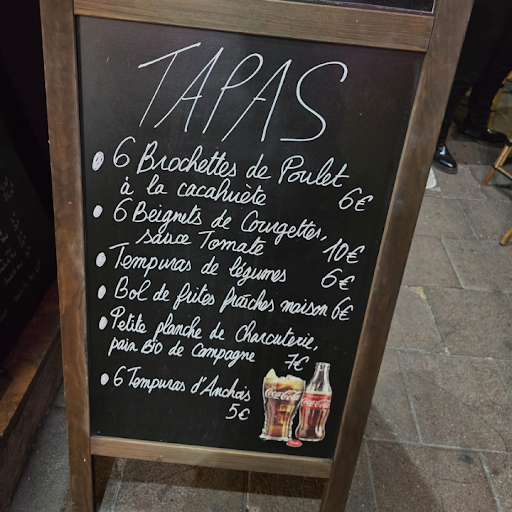 TAPAS
• 6 Brochettes de Poulet
à la cacahuète 6€
• 6 Beignets de Courgettes,
sauce Tomate 10€
• Tempuras de légumes 6€
• Bol de frites fraîches maison 6€
• Petite planche de Charcuterie,
pain BIO de Campagne 7€
• 6 Tempuras d'Anchois
5€
Coca-Cola Coca-Cola